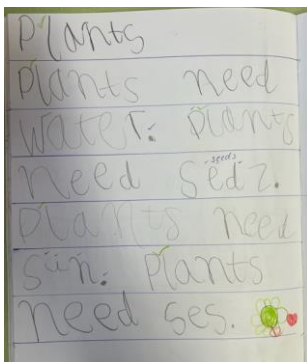 Plants
Plants need
water. Plants
seeds
need sedz.
Plants need
sun. Plants
need ses.